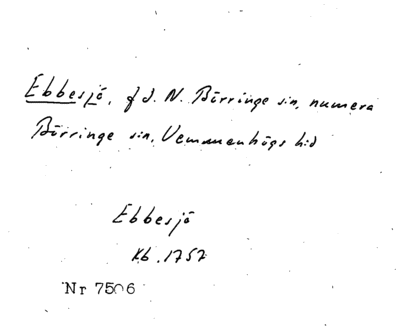 Ebbesjö, f d. N. Börringe sn, numera
Börringe sn, Vemmenhögs hd
Ebbesjö
Kb. 1757
Nr 7506